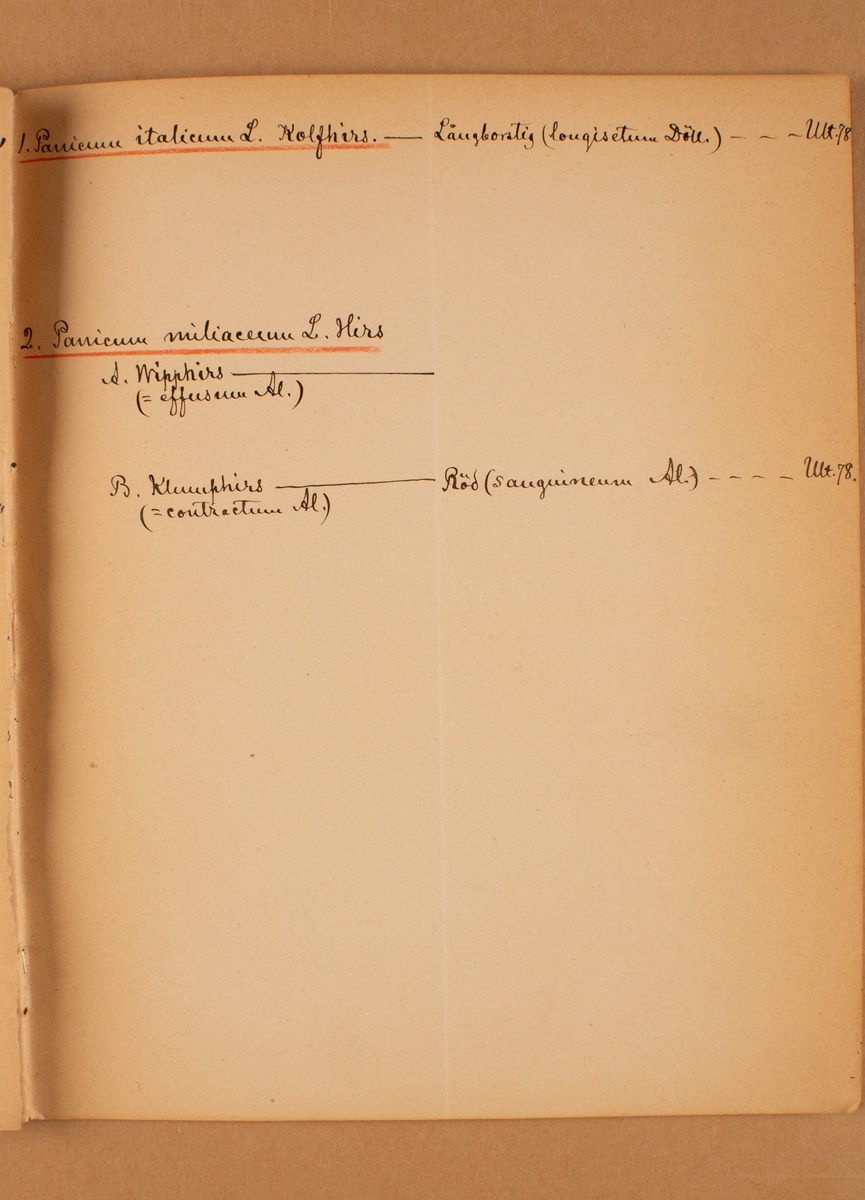 1. Panicum italicum L. Kolfhirs. — Långborstig (longisetum Döll.) - - - Utt. 78
2. Panicum miliaceum L. Hirs
A. Wipphirs —
(= effusum Al.)
B. Klumphirs — Röd (sanguineum Al.) - - - - Utt. 78.
(= contractum Al.)